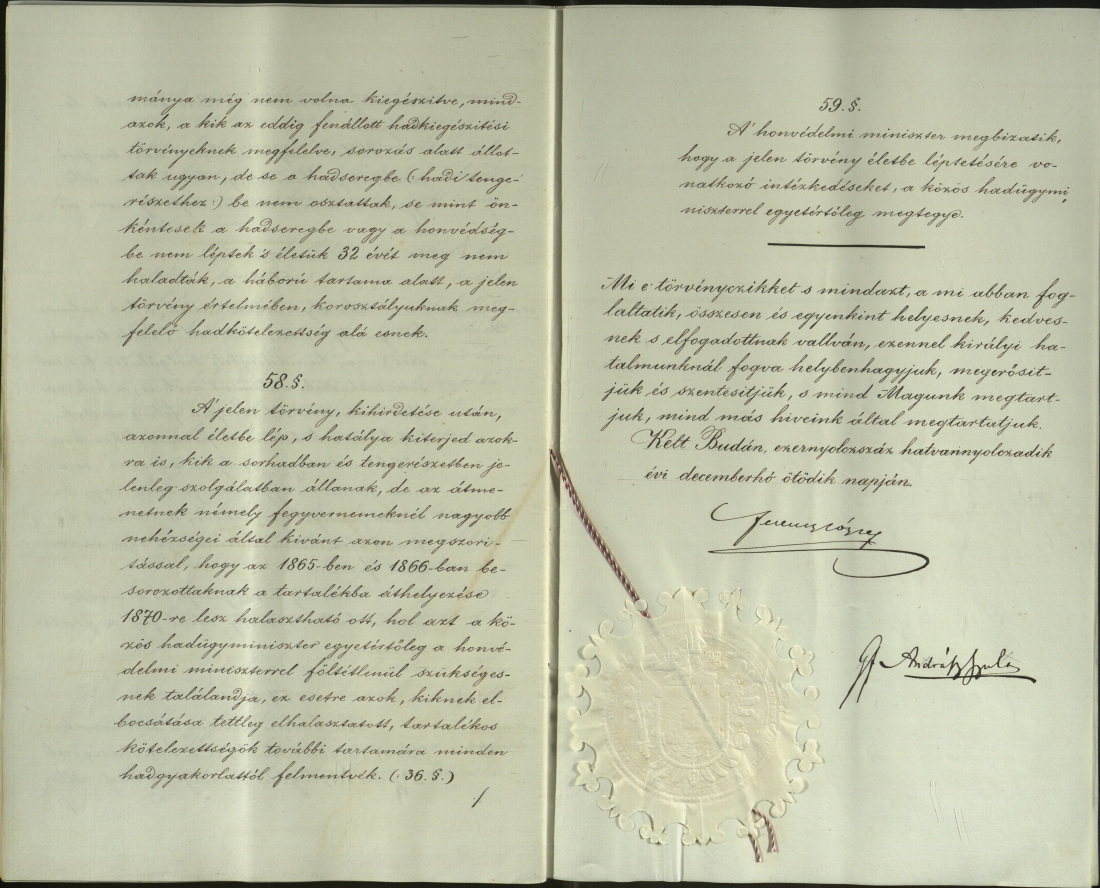 mánya még nem volna kiegészitve, mind-
azok, a kik az eddig fenállott hadkiegészitési
törvényeknek megfelelve, sorozás alatt állot-
tak ugyan, de se a hadseregbe (: hadi tenge-
részethez:) be nem osztattak, se mint ön-
kéntesek a hadseregbe vagy a honvédség-
be nem léptek 's életük 32 évét meg nem
haladták, a háború tartama alatt, a jelen
törvény értelmében, korosztályuknak meg-
felelő hadkötelezettség alá esnek.
58. §.
A' jelen törvény, kihirdetése után,
azonnal életbe lép, s hatálya kiterjed azok-
ra is, kik a sorhadban és tengerészetben je-
lenleg szolgálatban állanak, de az átme-
netnek némely fegyvernemeknél nagyobb
nehézségei által kivánt azon megszori-
tással, hogy az 1865-ben és 1866-ban be-
sorozottaknak a tartalékba áthelyezése
1870-re lesz halasztható ott, hol azt a kö-
zös hadügyminiszter egyetértőleg a honvé-
delmi miniszterrel föltétlenül szükséges-
nek találandja, ez esetre azok, kiknek el-
bocsátása tettleg elhalasztatott, tartalékos
kötelezettségök további tartamára minden
hadgyakorlattól felmentvék. (: 36. §.)
59. §.
A' honvédelmi miniszter megbizatik,
hogy a jelen törvény életbe léptetésére vo-
natkozó intézkedéseket, a közös hadügymi,,
niszterrel egyetértőleg megtegye.
Mi e törvényczikket s mindazt, a mi abban fog-
laltatik, összesen és egyenkint helyesnek, kedves-
nek s elfogadottnak vallván, ezennel királyi ha-
talmunknál fogva helybenhagyjuk, megerősit-
jük és szentesitjük, s mind Magunk megtart-
juk, mind más hiveink által megtartatjuk.
Kelt Budán, ezernyolczszáz hatvannyolczadik
évi deczemberhó ötödik napján.
Ferencz József
Gf Andrássy Gyula